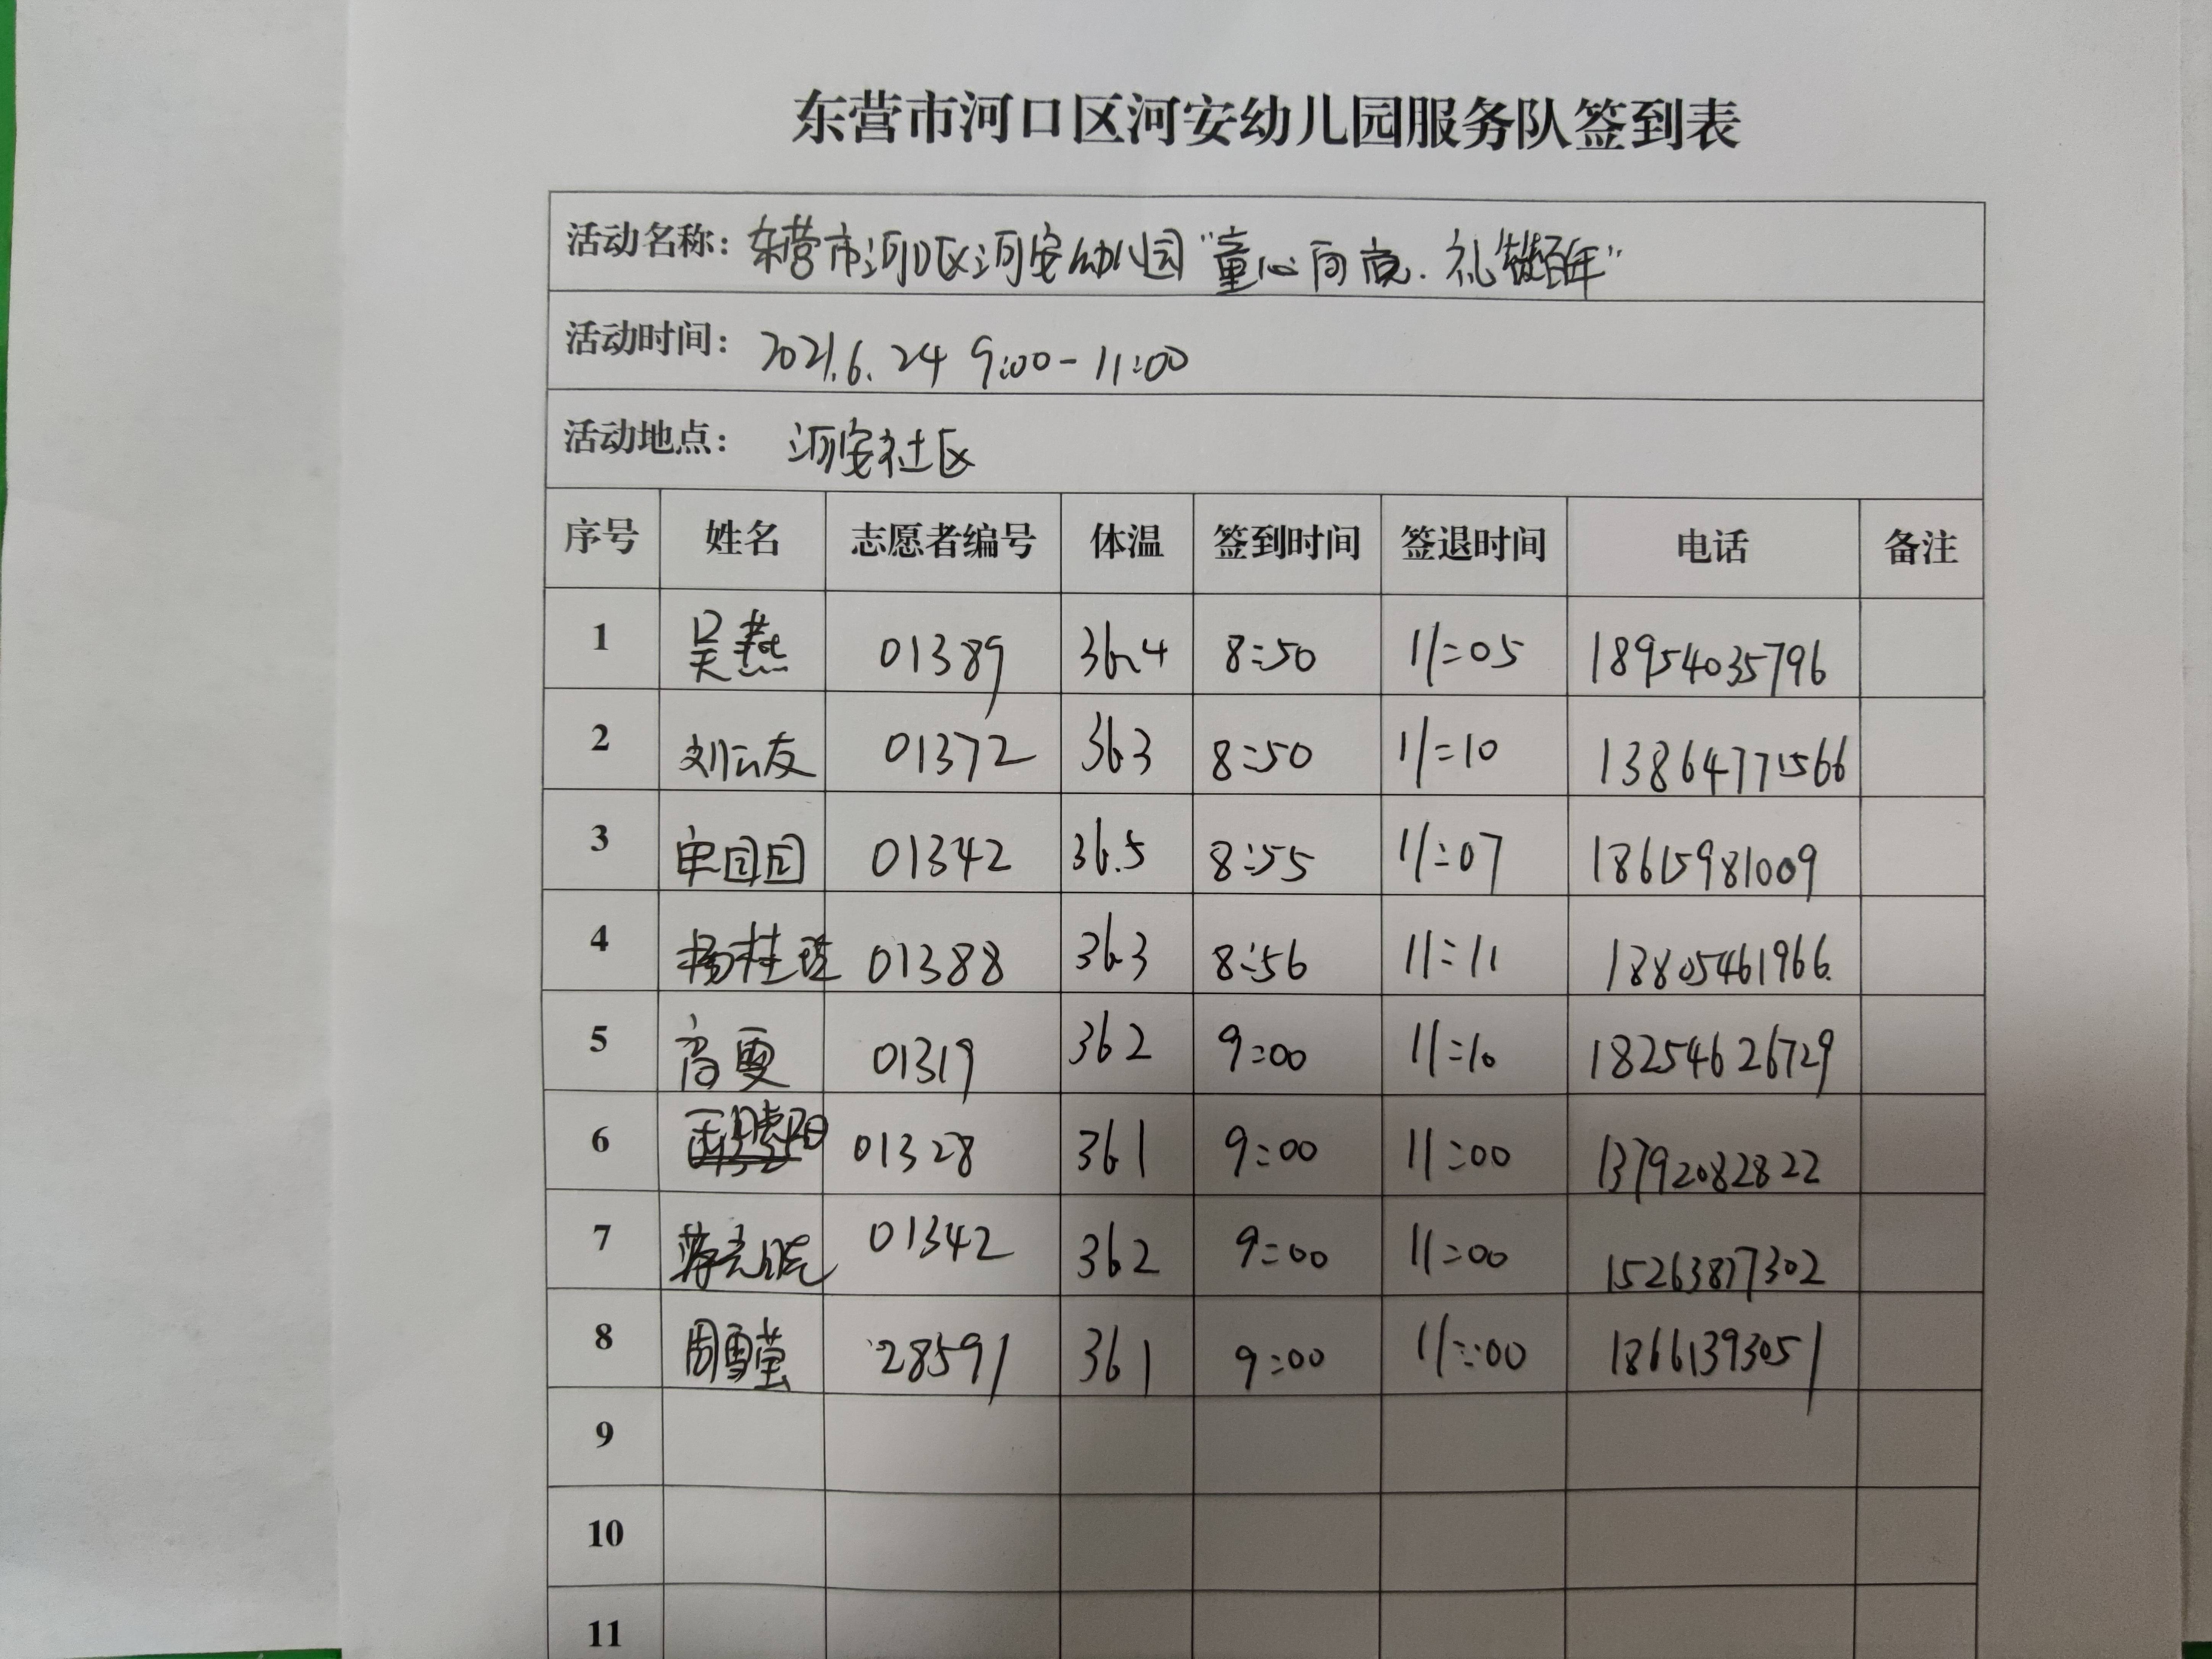 东营市河口区河安幼儿园服务队签到表
活动名称: 东营市河口区河安幼儿园"童心向党.礼赞百年"
活动时间: 2021.6.24 9:00-11:00
活动地点: 河安社区
序号 姓名 志愿者编号 体温 签到时间 签退时间 电话 备注
1 吴燕 01389 36.4 8:50 11:05 18954035796
2 刘云友 01372 363 8:50 11:10 13864771566
3 01342 36.5 8:55 11:07 18615981009
4 杨桂 01388 36.3 8:56 11:11 18805461966.
5 高雯 01319 362 9:00 11:10 18254626729
6 01328 361 9:00 11:00 13792082822
7 01342 362 9:00 11:00 15263877302
8 周雪莹 28591 361 9:00 11:00 18661393051
9
10
11